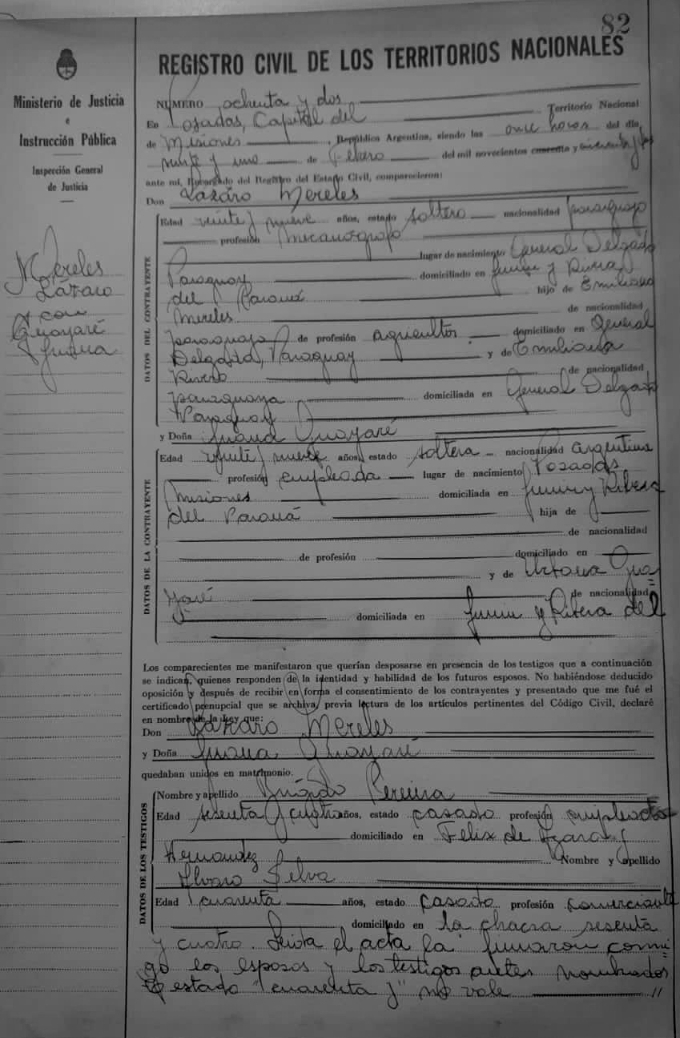 82
REGISTRO CIVIL DE LOS TERRITORIOS NACIONALES
Ministerio de Justicia
e
Instrucción Pública
Inspección General
de Justicia
Mereles
Lázaro
con
Guayaré
Juana
NUMERO ochenta y dos
En Posadas, Capital del Territorio Nacional
de Misiones, República Argentina, siendo las once horas del día
veinte y uno de Febrero del mil novecientos cuarenta y
ante mí, Encargado del Registro del Estado Civil, comparecieron:
Don Lázaro Mereles
DATOS DEL CONTRAYENTE
Edad veinte y nueve años, estado soltero nacionalidad paraguayo
profesión mecanógrafo
lugar de nacimiento General Delgado
Paraguay domiciliado en Junin y Rivera
del Paraná hijo de Emiliano
Mereles de nacionalidad
paraguayo de profesión agricultor domiciliado en General
Delgado, Paraguay y de Emiliana
Rivero de nacionalidad
paraguaya domiciliada en General Delgado
Paraguay
y Doña Juana Guayaré
DATOS DE LA CONTRAYENTE
Edad veinte y nueve años, estado soltera nacionalidad Argentina
profesión empleada lugar de nacimiento Posadas
Misiones domiciliada en Junin y Ribera
del Paraná hija de
de nacionalidad
de profesión domiciliado en
y de Victoria Gua=
yaré de nacionalidad
domiciliada en Junin y Ribera del
Los comparecientes me manifestaron que querían desposarse en presencia de los testigos que a continuación
se indican, quienes responden de la identidad y habilidad de los futuros esposos. No habiéndose deducido
oposición y después de recibir en forma el consentimiento de los contrayentes y presentado que me fué el
certificado prenupcial que se archiva, previa lectura de los artículos pertinentes del Código Civil, declaré
en nombre de la ley que:
Don Lázaro Mereles
y Doña Juana Guayaré
quedaban unidos en matrimonio.
DATOS DE LOS TESTIGOS
Nombre y apellido Brígido Pereira
Edad sesenta y cuatro años, estado casado profesión empleado
domiciliado en Felix de Azara y
Hernandez Nombre y apellido
Alvaro Silva
Edad cuarenta años, estado casado profesión comerciante
domiciliado en la chacra sesenta
y cuatro. Leida el acta la firmaron conmi=
go los esposos y los testigos antes nombrados
estado "cuarenta y" no vale